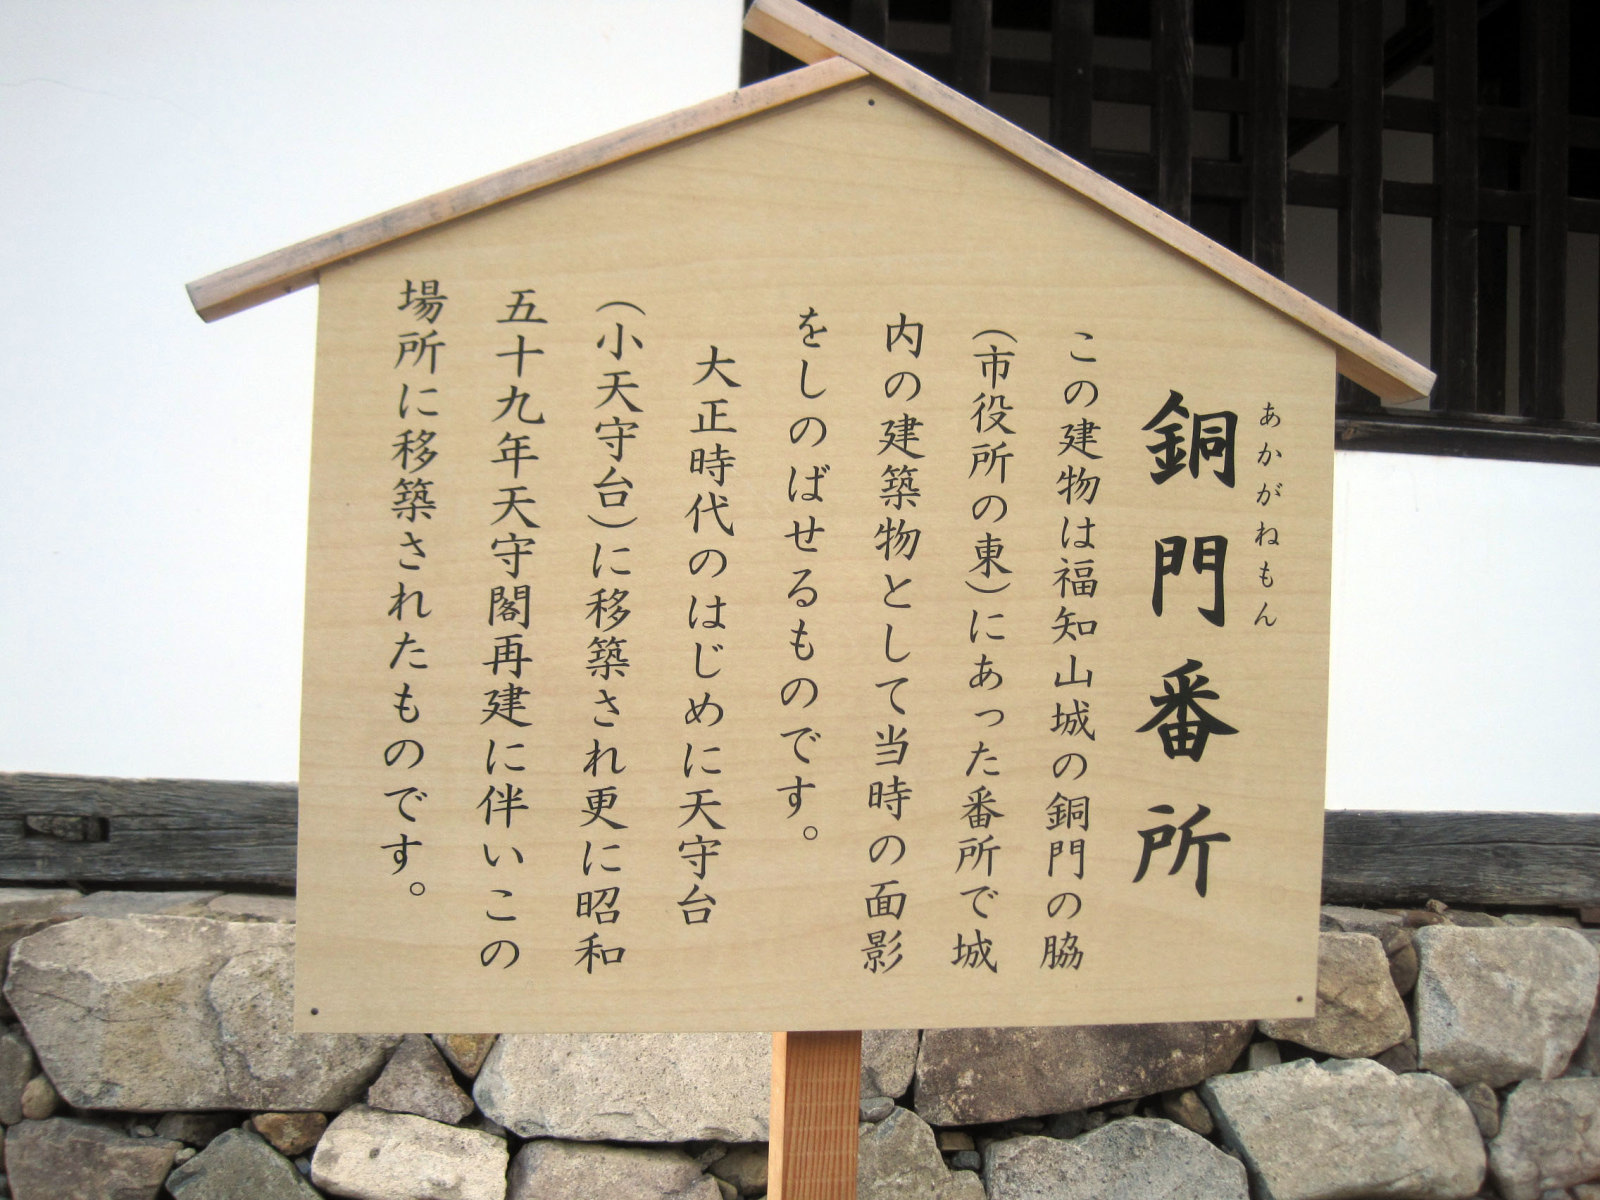 あかがねもん
銅門番所
この建物は福知山城の銅門の脇
(市役所の東)にあった番所で城
内の建築物として当時の面影
をしのばせるものです。
大正時代のはじめに天守台
(小天守台)に移築され更に昭和
五十九年天守閣再建に伴いこの
場所に移築されたものです。